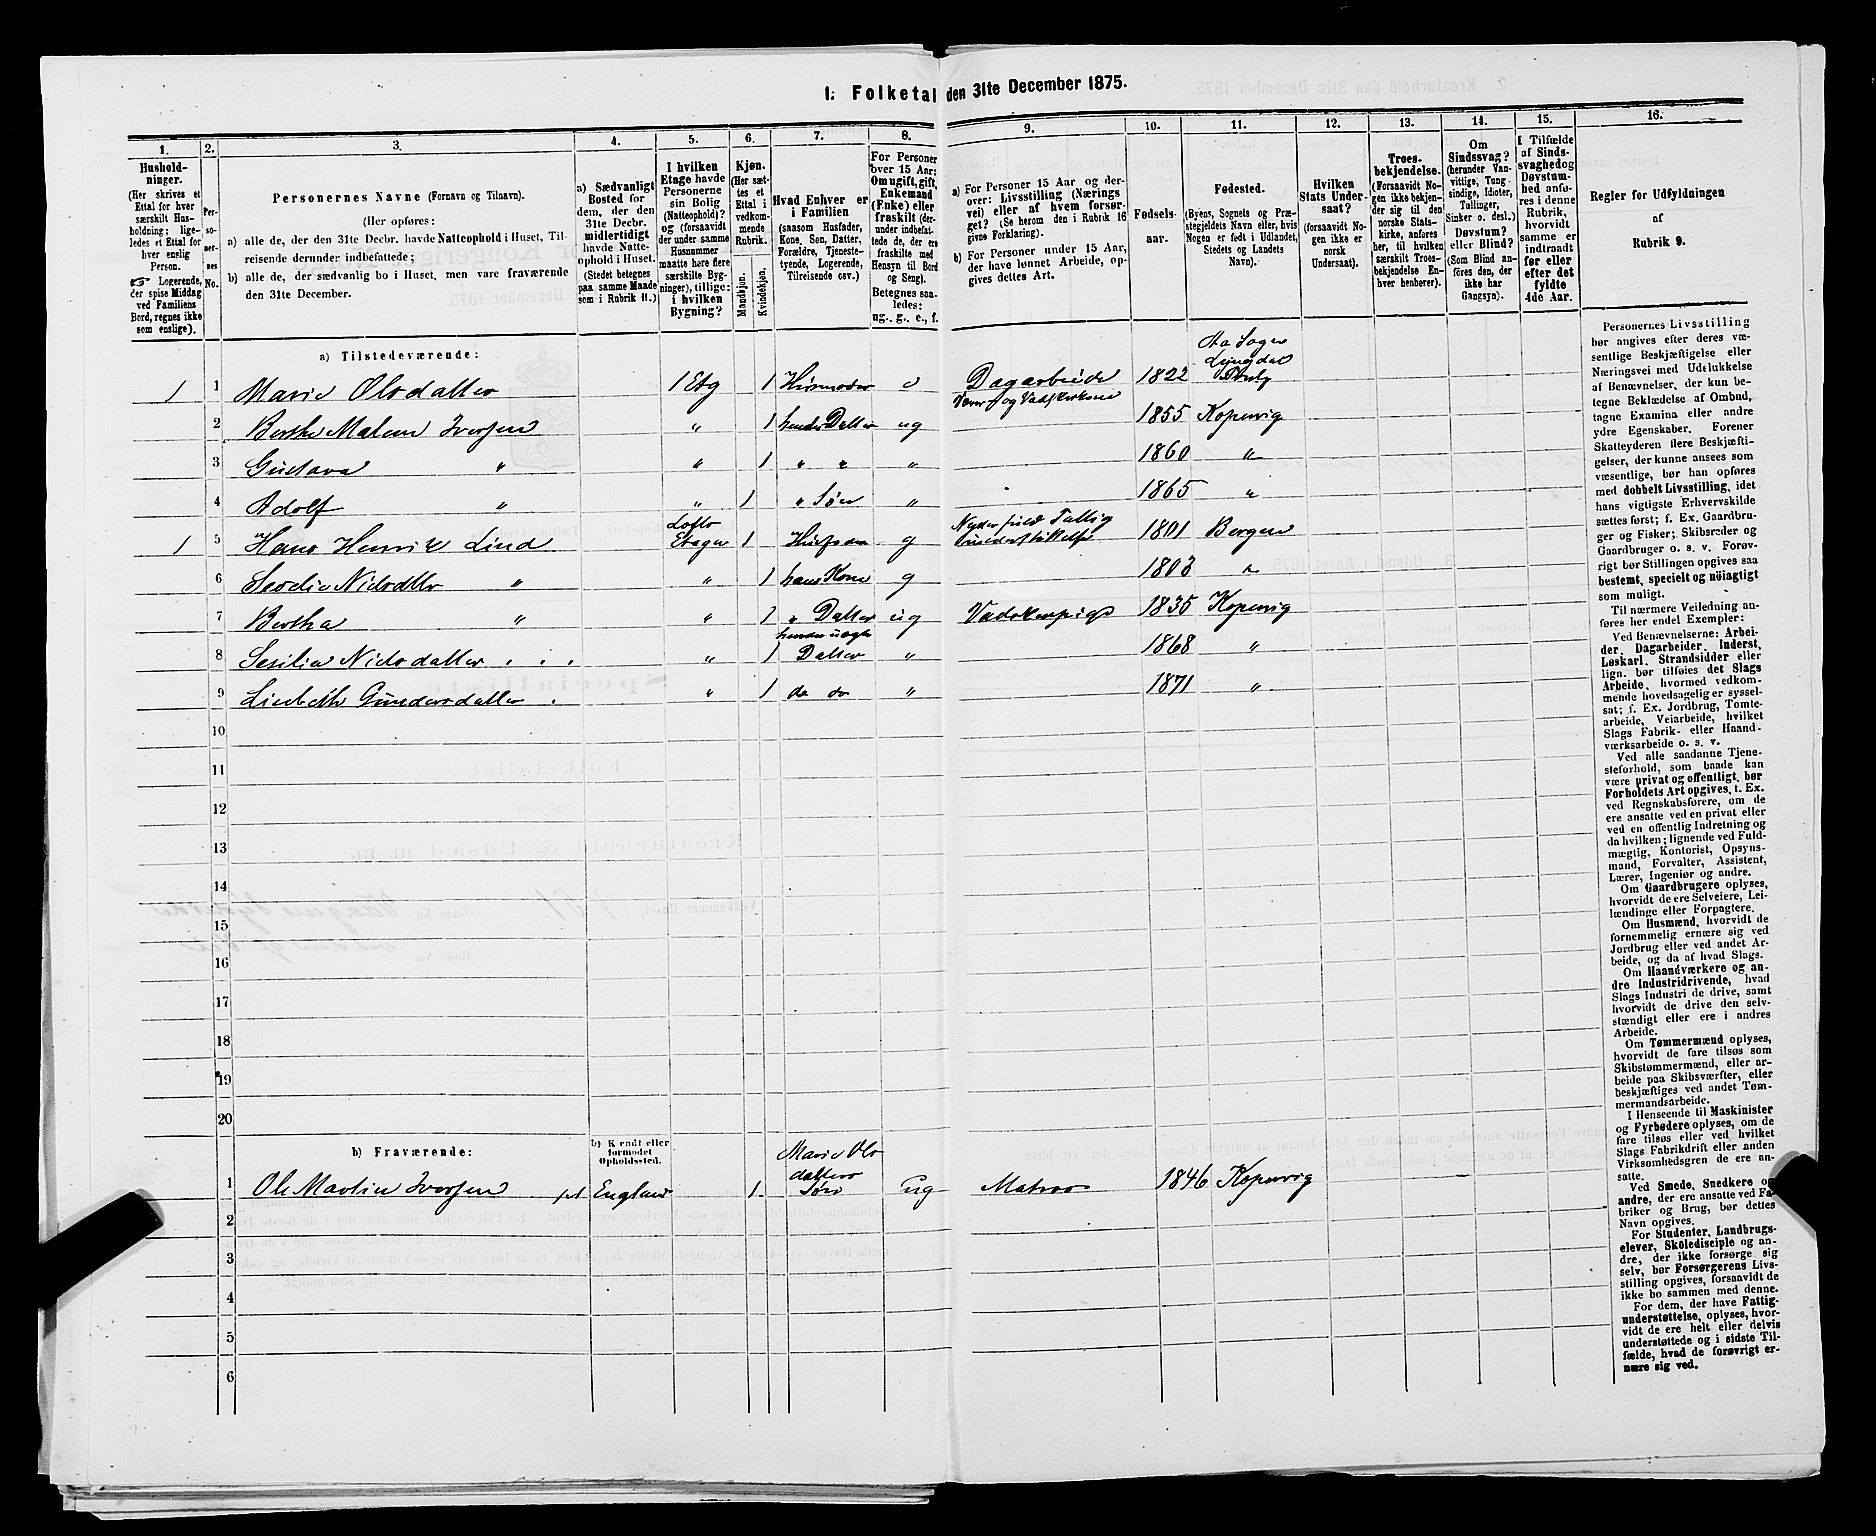 1. Folketal den 31te December 1875.
1. 2. 3. 4. 5. 6. 7. 8. 9. 10. 11. 12. 13. 14. 15. 16.
Hushold-
ninger.
(Her skrives et
Ettal for hver
særskilt Hus-
holdning; lige-
ledes et Ettal for
hver enslig
Person.
☞ Logerende,
der spise Middag
ved Familiens
Bord, regnes ikke
som enslige).
Per-
so-
ner-
nes
No.
Personernes Navne (Fornavn og Tilnavn).
(Her opføres:
a) alle de, der den 31te Decbr. havde Natteophold i Huset, Til-
reisende derunder indbefattede;
b) alle de, der sædvanlig bo i Huset, men vare fraværende
den 31te December.
a) Sædvanligt
Bosted for
dem, der den
31te Decbr.
midlertidigt
havde Natte-
ophold i Huset.
(Stedet betegnes
paa samme Maade
som i Rubrik 11.)
I hvilken
Etage havde
Personerne
sin Bolig
(Natteophold)?
og (forsaavidt
der under samme
Husnummer
maatte høre flere
særskilte Byg-
ninger), tillige:
i hvilken
Bygning?
Kjøn.
(Her sæt-
tes et
Ettal i
vedkom-
mende
Rubrik.)
Mandkjøn.
Kvindekjøn.
Hvad Enhver er
i Familien
(saasom Husfader,
Kone, Søn, Datter,
Forældre, Tjeneste-
tyende, Logerende,
Tilreisende osv.)
For Personer
over 15 Aar:
Om ugift, gift,
Enkemand
(Enke) eller
fraskilt (der-
under indbefat-
tede de, der ere
fraskilte med
Hensyn til Bord
og Seng).
Betegnes saa-
ledes:
ug., g., e., f.
a) For Personer 15 Aar og der-
over: Livsstilling (Nærings-
vei) eller af hvem forsør-
get? (Se herom den i Rubrik 16
givne Forklaring).
b) For Personer under 15 Aar,
der have lønnet Arbeide, op-
gives dettes Art.
Fødsels-
aar.
Fødested.
(Byens, Sognets og Præ-
stegjeldets Navn eller, hvis
Nogen er født i Udlandet,
Stedets og Landets
Navn).
Hvilken
Stats Under-
saat?
(forsaavidt No-
gen ikke er
norsk
Undersaat).
Troes-
bekjendelse.
(Forsaavidt No-
gen ikke bekjen-
der sig til den
norske Stats-
kirke, anføres
her, til hvilken
særskilt Troes-
bekjendelse En-
hver henhører).
Om
Sindssvag?
(herunder Van-
vittige, Tung-
sindige, Idioter,
Tullinger,
Sinker o. desl.)
Døvstum?
eller Blind?
(Som Blind an-
føres den, der
ikke har
Gangsyn).
I Tilfælde
af Sinds-
svaghed og
Døvstum-
hed anfø-
res i denne
Rubrik,
hvorvidt
samme er
indtraadt
før eller
efter det
fyldte
4de Aar.
Regler for Udfyldningen
af
Rubrik 9.
a) Tilstedeværende:
1 1 Marie Olsdatter 1 Etg 1 Husmoder e Dagarbeide Væver- og Vadskerkone 1822 Aa Sogn Lyngdal
2 Berthe Malene Iversen " 1 hendes Datter ug 1855 Kopervig
3 Gustava " " 1 " " " 1860 "
4 Adolf " " 1 " Søn " 1865 "
1 5 Hans Henrik Lind Lofts Etagen 1 Husfader g Nyder fuld Fattig understøttelse 1801 Bergen
6 Nielsdtr " " 1 hans Kone g 1803 "
7 Bertha " " 1 " Datter ug Vadskerpige 1835 Kopervig
8 Sesilie Nielsdatter " 1 hendes uægte Datter " 1868 "
9 Lisebeth Gundersdatter " 1 do do " 1871 "
10
11
12
13
14
15
16
17
18
19
20
b) Fraværende:
b) Kjendt eller
formodet
Opholdssted.
1 Ole Martin Iversen England 1 Marie Olsdatters Søn ug Matros 1846 Kopervig
2
3
4
5
6
Personernes Livsstilling
bør angives efter deres væ-
sentlige Beskjæftigelse eller
Næringsvei med Udelukkelse
af Benævnelser, der kun be-
tegne Beklædelse af Ombud,
tagne Examina eller andre
ydre Egenskaber. Forener
Skatteyderen flere Beskjæfti-
gelser, der kunne ansees som
væsentlige, bør han opføres
med dobbelt Livsstilling, idet
hans vigtigste Erhvervskilde
sættes først; f. Ex. Gaardbru-
ger og Fisker; Skibsreder og
Gaardbruger o. s. v. Forøv-
rigt bør Stillingen opgives saa
bestemt, specielt og nøiagtigt
som muligt.
Til nærmere Veiledning an-
føres her endel Exempler:
Ved Benævnelserne: Arbei-
der, Dagarbeider, Inderst,
Løskarl, Strandsidder eller
lign. bør tilføies det Slags
Arbeide, hvormed vedkom-
mende hovedsagelig er syssel-
sat; f. Ex. Jordbrug, Tomte-
arbeide, Veiarbeide, hvilket
Slags Fabrik- eller Haand-
værksarbeide o. s. v.
Ved alle saadanne Tjene-
steforhold, som baade kan
være privat og offentligt, bør
Forholdets Art opgives, t. Ex.
ved Regnskabsførere, om de
ere ansatte ved en privat eller
ved en offentlig Indretning og
da hvilken; lignende ved Fuld-
mægtig, Kontorist, Opsyns-
mand, Forvalter, Assistent,
Lærer, Ingeniør og andre.
Om Gaardbrugere oplyses,
hvorvidt de ere Selveiere, Lei-
lændinge eller Forpagtere.
Om Husmænd, hvorvidt de
fornemmelig ernære sig ved
Jordbrug eller ved andet Ar-
beide, og da af hvad Slags.
Om Haandværkere og an-
dre Industridrivende, hvad
Slags Industri de drive, samt
hvorvidt de drive den selv-
stændigt eller ere i andres
Arbeide.
Om Tømmermænd oplyses,
hvorvidt de fare tilsøs som
Skibstømmermænd, eller ar-
beide paa Skibsværfter, eller
beskjæftiges ved andet Tøm-
mermandsarbeide.
I Henseende til Maskinister
og Fyrbødere oplyses, om de
fare tilsøs eller ved hvilket
Slags Fabrikdrift eller anden
Virksomhedsgren de ere an-
satte.
Ved Smede, Snedkere og
andre, der ere ansatte ved Fa-
briker og Brug, bør dettes
Navn opgives.
For Studenter, Landbrugs-
elever, Skoledisciple og an-
dre, der ikke forsørge sig
selv, bør Forsørgerens Livs-
stilling opgives, forsaavidt de
ikke bo sammen med denne.
For dem, der have Fattig-
understøttelse, oplyses, hvor-
vidt de ere helt eller delvis
understøttede og i sidste Til-
fælde, hvad de forøvrigt er-
nære sig ved.